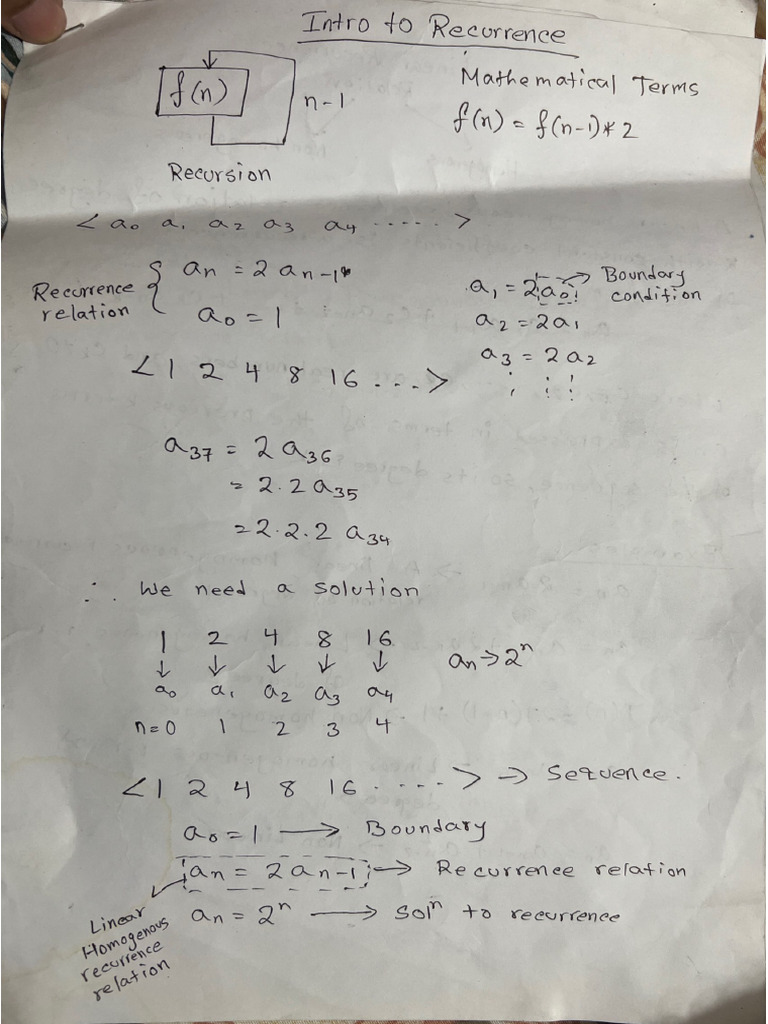 Intro to Recurrence
f(n)
n-1
Recursion
Mathematical Terms
f(n) = f(n-1)* 2
< a₀ a₁ a₂ a₃ a₄ ...... >
Recurrence relation { aₙ = 2 aₙ₋₁
a₀ = 1
a₁ = 2 a₀ → Boundary condition
a₂ = 2a₁
a₃ = 2 a₂
< 1 2 4 8 16 ... >
a₃₇ = 2 a₃₆
= 2.2 a₃₅
= 2.2.2 a₃₄
∴ We need a solution
1 2 4 8 16
↓ ↓ ↓ ↓ ↓
a₀ a₁ a₂ a₃ a₄
n=0 1 2 3 4
aₙ → 2ⁿ
< 1 2 4 8 16 ..... > → Sequence.
a₀ = 1 → Boundary
aₙ = 2 aₙ₋₁ → Recurrence relation
aₙ = 2ⁿ → Solⁿ to recurrence
Linear
Homogenous
recurrence
relation